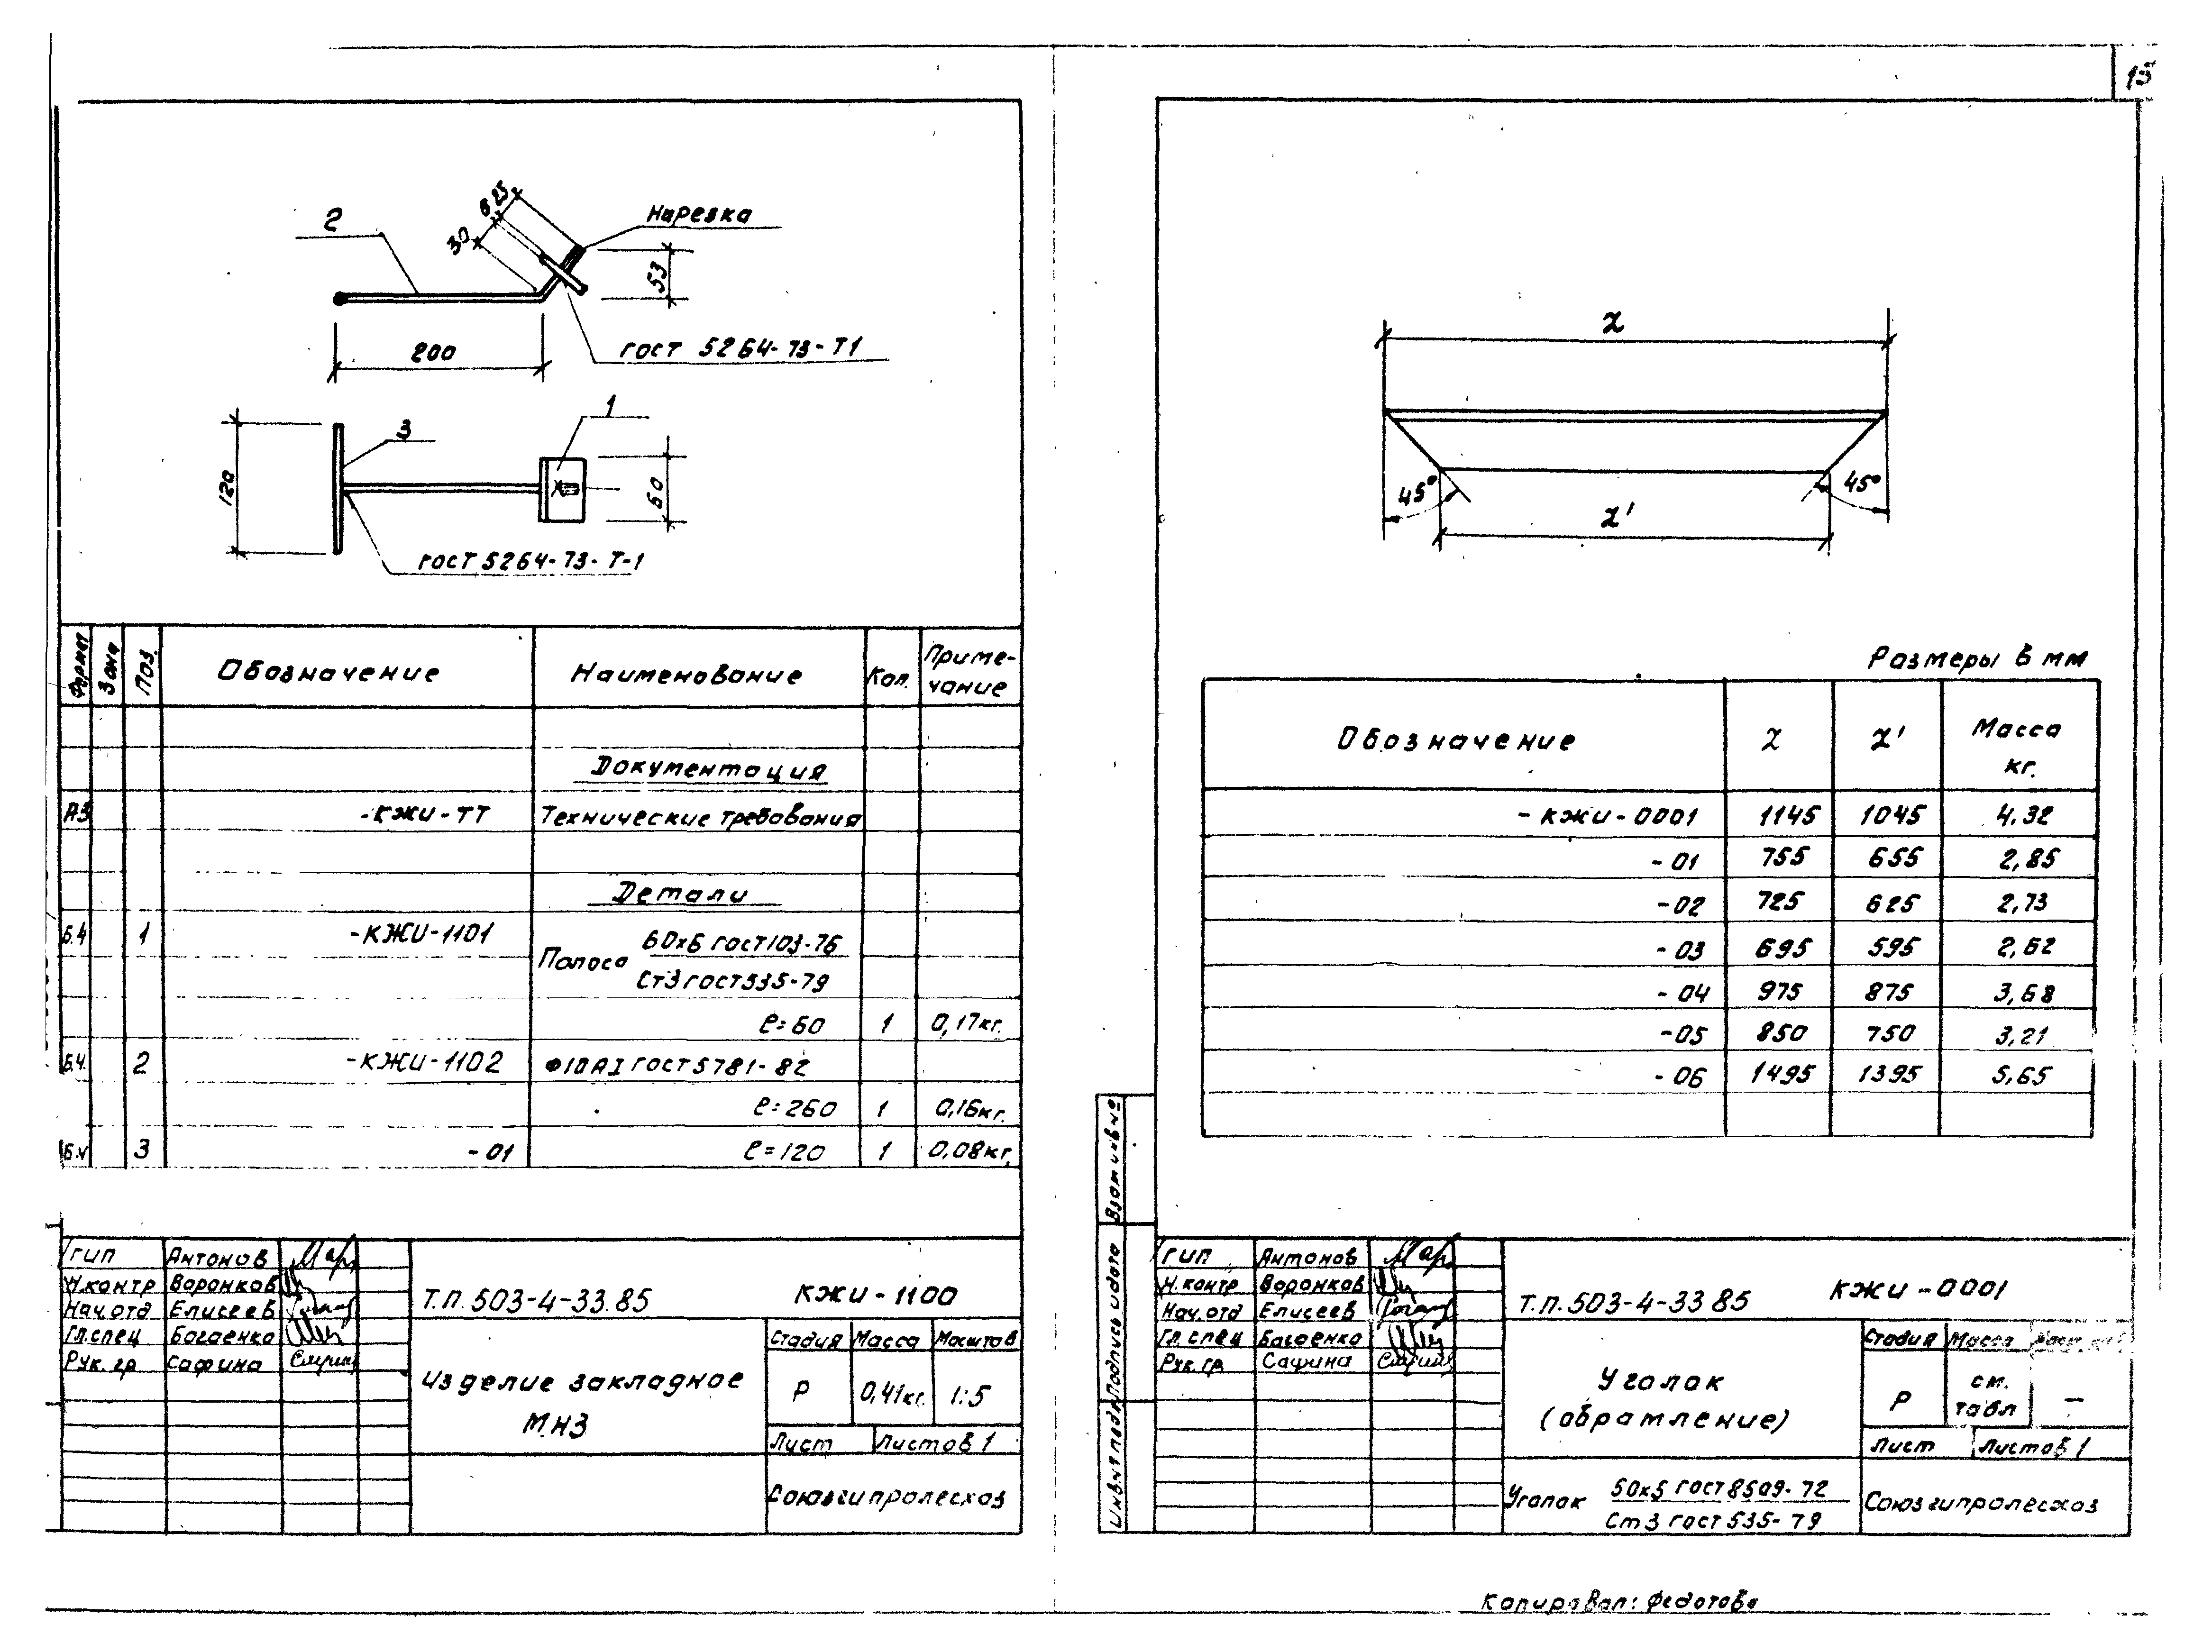 15
2
30
6
25
Нарезка
53
200
ГОСТ 5264-73-Т1
1
3
120
60
ГОСТ 5264-73-Т-1
Формат
Зона
Поз.
Обозначение
Наименование
Кол.
Приме-
чание
Документация
А3
-КЖИ-ТТ
Технические требования
Детали
Б.4
1
-КЖИ-1101
Полоса
60х6 ГОСТ 103-76
Ст3 ГОСТ 535-79
ℓ=60
1
0,17кг.
Б.4.
2
-КЖИ-1102
Ф10АI ГОСТ 5781-82
ℓ=260
1
0,16кг.
Б.ч
3
-01
ℓ=120
1
0,08кг.
ГИП
Антонов
Н.контр
Воронков
Нач.отд
Елисеев
Гл.спец
Багаенко
Рук. гр
Сафина
Т.П. 503-4-33.85
КЖИ-1100
Изделие закладное
МН3
Стадия
Масса
Масштаб
Р
0,41кг.
1:5
Лист
Листов 1
Союзгипролесхоз
ℓ
45°
45°
ℓ'
Размеры в мм
Обозначение
ℓ
ℓ'
Масса
кг.
-КЖИ-0001
1145
1045
4,32
-01
755
655
2,85
-02
725
625
2,73
-03
695
595
2,62
-04
975
875
3,68
-05
850
750
3,21
-06
1495
1395
5,65
Взам инв №
Подпись и дата
Инв. № подл.
ГИП
Антонов
Н.контр
Воронков
Нач.отд
Елисеев
Гл.спец
Багаенко
Рук. гр
Сафина
Т.П. 503-4-33 85
КЖИ-0001
Уголок
(обрамление)
Стадия
Масса
Р
см.
табл
—
Лист
Листов 1
Уголок
50х5 ГОСТ 8509-72
Ст 3 ГОСТ 535-79
Союзгипролесхоз
Копировал: Федотова